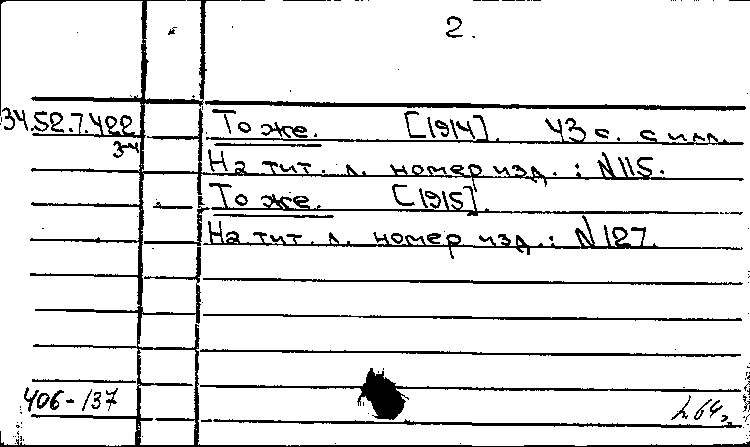 2.
34.52.7.422 То же. [1914]. 43 с. с илл.
3-4
На тит. л. номер изд.: N 115.
То же. [1915].
На тит. л. номер изд.: N 127.
406-137